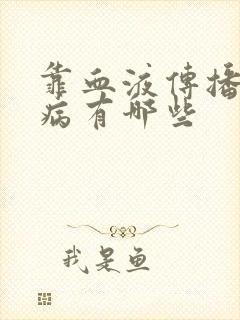 靠血液傳播
病有哪些
我是鱼